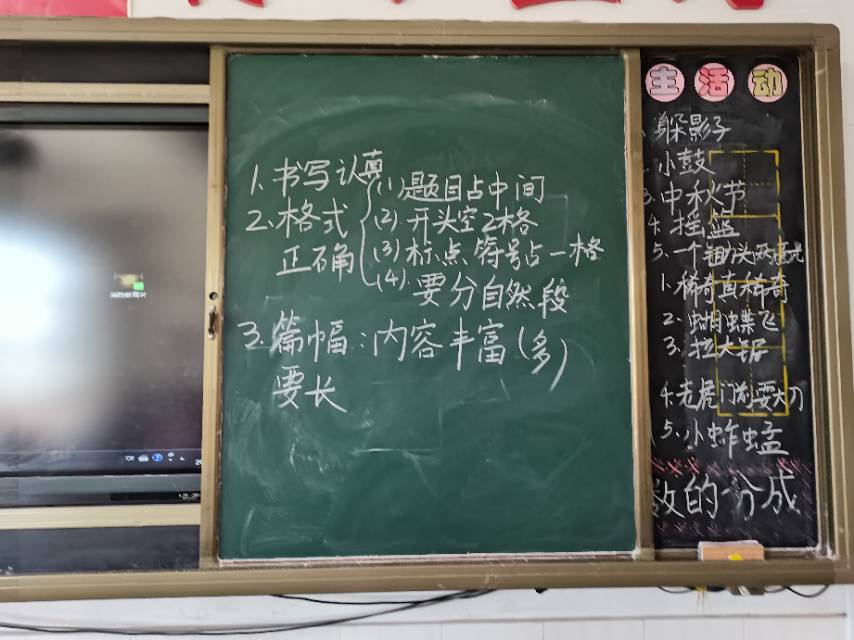 1. 书写认真
2. 格式
正确
(1) 题目占中间
(2) 开头空2格
(3) 标点符号占一格
(4) 要分自然段
3. 篇幅:内容丰富(多)
要长
主活动
躲影子
2. 小鼓
3. 中秋节
4. 摇篮
5. 一个
1. 稀奇真稀奇
2. 蝴蝶飞
3. 拉大锯
4. 老虎门前耍大刀
5. 小蚱蜢
数的分成